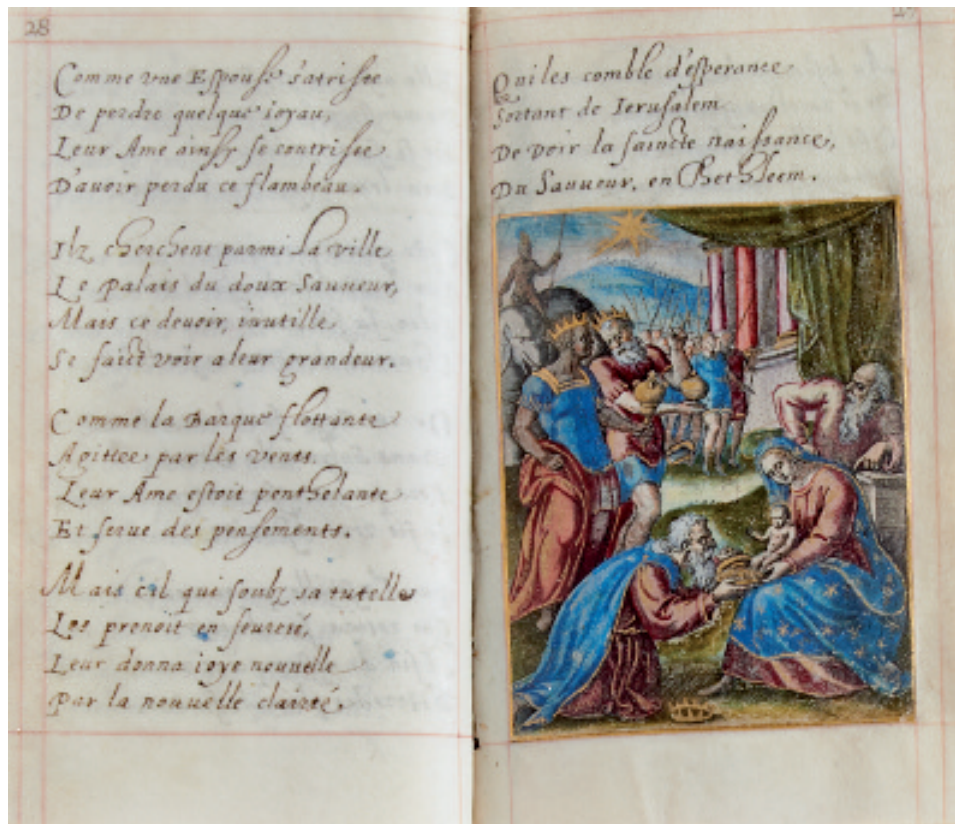 28
Comme vne Espouse s'atriste
De perdre quelque ioyau,
Leur Ame ainsy se contriste
D'auoir perdu ce flambeau.
Ilz cherchent parmi la ville
Le palais du doux Sauueur,
Mais ce deuoir, inutille
Se faict voir a leur grandeur.
Comme la Barque flottante
Agittee par les vents.
Leur Ame estoit penthelante
Et serue des pensements.
Mais cil qui soubz sa tutelle
Les prenoit en seureté,
Leur donna ioye nouuelle
Par la nouuelle clairté.
Qui les comble d'esperance
Sortant de Ierusalem
De voir la saincte naissance,
Du Sauueur, en Bethleem.